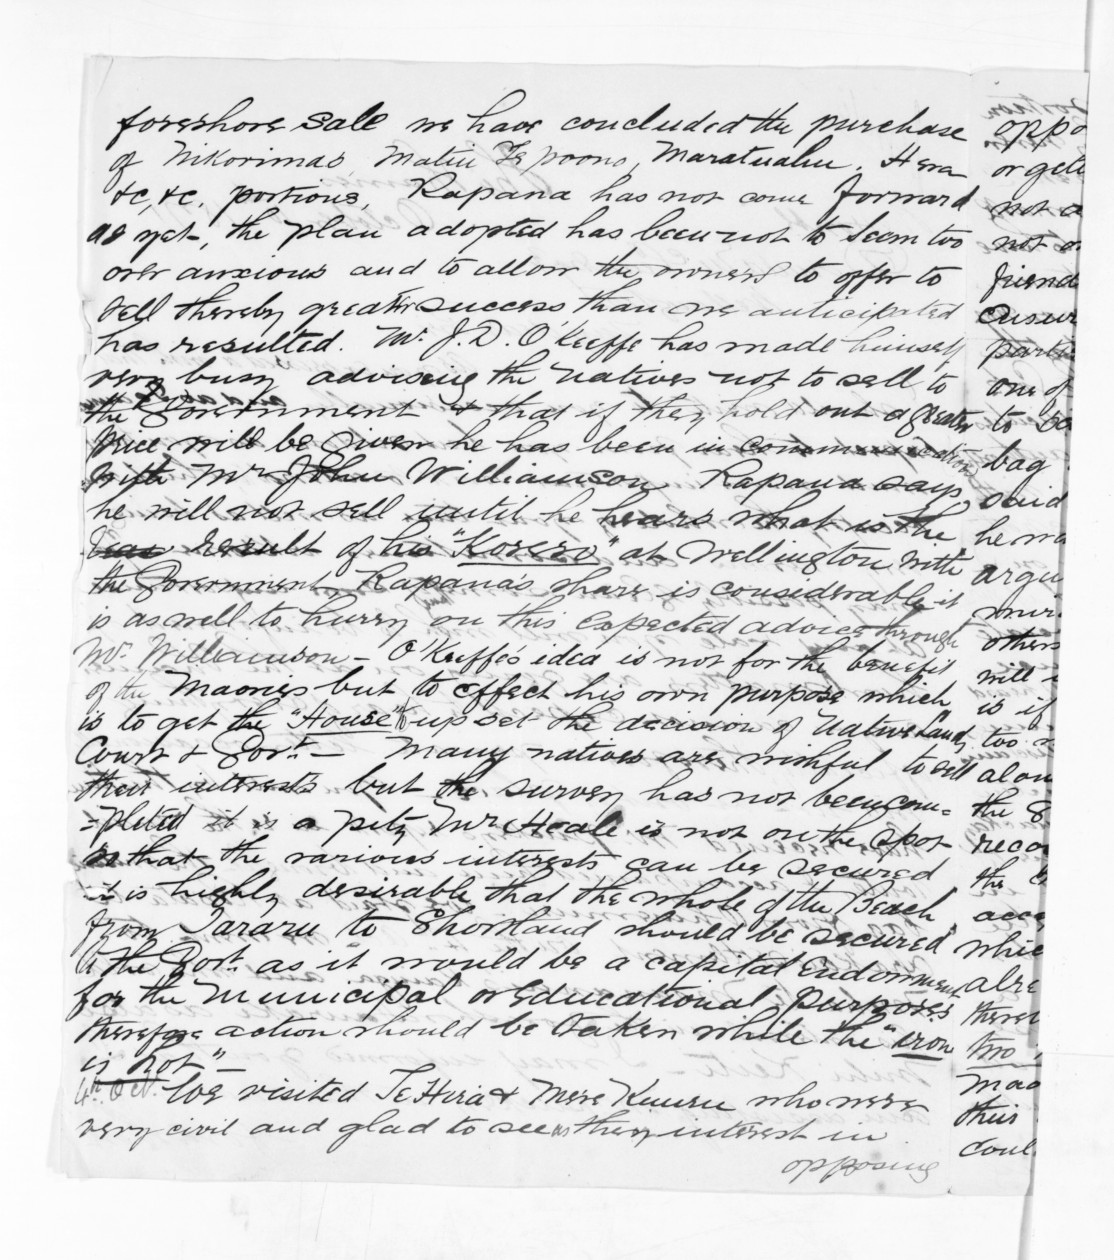 foreshore sale we have concluded the purchase
of Nikorimas, Matiu Te poono, Maratuahu, Hera
&c, &c. portions, Rapana has not come forward
as yet, the plan adopted has been not to seem too
over anxious and to allow the owners to offer to
sell thereby greater success than we anticipated
has resulted. Mr. J. D. O'Keeffe has made himself
very busy advising the natives not to sell to
the Government & that if they hold out a greater
price will be given he has been in communication
with Mr John Williamson Rapana says,
he will not sell until he hears what is the
result of his "Korero" at Wellington with
the Government, Rapana's share is considerable it
is as well to hurry on this expected advice through
Mr. Williamson – O'Keeffe's idea is not for the benefit
of the Maories but to effect his own purpose which
is to get the "House" to upset the decision of Native Lands
Court & Govt. – Many natives are wishful to sell
their interests but the survey has not been com-
=pleted it is a pity Mr Heale is not on the spot
so that the various interests can be secured
it is highly desirable that the whole of the Beach
from "Tararu" to Shortland should be secured
to the Govt. as it would be a capital Endowment
for the Municipal or Educational purposes
therefore action should be taken while the "iron
is hot" –
4th. Oct. We visited Te Hira & Mere Kuuru who were
very civil and glad to see us they interest in
opposing
oppo
or get
not a
not o
friend
Cusur
part
one of
to
bag
said
he wa
argu
mur
others
will
is if
too
alon
the
reco
the
acce
whic
alre
there
two
Mao
their
coul